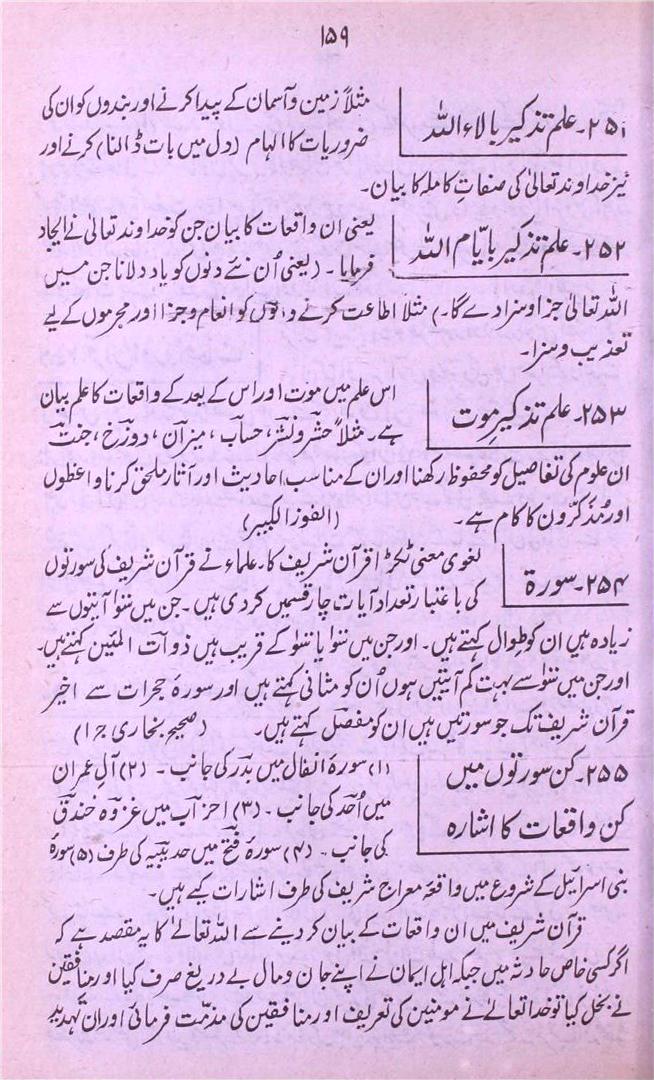 ۱۵۹
۲۵۱۔ علم تذکیر بالاء اللہ
مثلاً زمین و آسمان کے پیدا کرنے اور بندوں کو ان کی
ضروریات کا الہام (دل میں بات ڈالنا) کرنے اور
نیز خداوند تعالیٰ کی صفاتِ کاملہ کا بیان۔
۲۵۲۔ علم تذکیر بایّام اللہ
یعنی ان واقعات کا بیان جن کو خداوند تعالیٰ نے ایجاد
فرمایا۔ (یعنی اُن نئے دنوں کو یاد دلانا جن میں
اللہ تعالیٰ جزا و سزا دے گا۔) مثلاً اطاعت کرنے والوں کو انعام و جزا اور مجرموں کے لیے
تعذیب و سزا۔
۲۵۳۔ علم تذکیر موت
اس علم میں موت اور اس کے بعد کے واقعات کا علم بیان
ہے۔ مثلاً حشر و نشر، حساب، میزان، دوزخ، جنت
ان علوم کی تفاصیل کو محفوظ رکھنا اور ان کے مناسب احادیث اور آثار ملحق کرنا واعظوں
اور مُذکّرون کا کام ہے۔ (الفوز الکبیر)
۲۵۴۔ سورة
لغوی معنی ٹکڑا قرآن شریف کا۔ علماء نے قرآن شریف کی سورتوں
کی باعتبار تعداد آیات چار قسمیں کر دی ہیں۔ جن میں سَو آیتوں سے
زیادہ ہیں ان کو طوال کہتے ہیں۔ اور جن میں سَو یا سَو کے قریب ہیں ذوات المئین کہتے ہیں۔
اور جن میں سَو سے بہت کم آیتیں ہوں اُن کو مثانی کہتے ہیں اور سورۂ حجرات سے اخیر
قرآن شریف تک جو سورتیں ہیں ان کو مفصّل کہتے ہیں۔ (صحیح بخاری ج۱)
۲۵۵۔ کن سورتوں میں
کن واقعات کا اشارہ
(۱) سورۂ انفال میں بدر کی جانب۔ (۲) آلِ عمران
میں اُحد کی جانب۔ (۳) احزاب میں غزوہ خندق
کی جانب۔ (۴) سورۂ فتح میں حدیبیہ کی طرف (۵) سورۂ
بنی اسرائیل کے شروع میں واقعۂ معراج شریف کی طرف اشارات کیے ہیں۔
قرآن شریف میں ان واقعات کے بیان کر دینے سے اللہ تعالےٰ کا یہ مقصد ہے کہ
اگر کسی خاص حادثہ میں جبکہ اہل ایمان نے اپنے جان و مال بے دریغ صرف کیا اور منافقین
نے بخل کیا تو خدا تعالےٰ نے مومنین کی تعریف اور منافقین کی مذمّت فرمائی اور ان تہدید